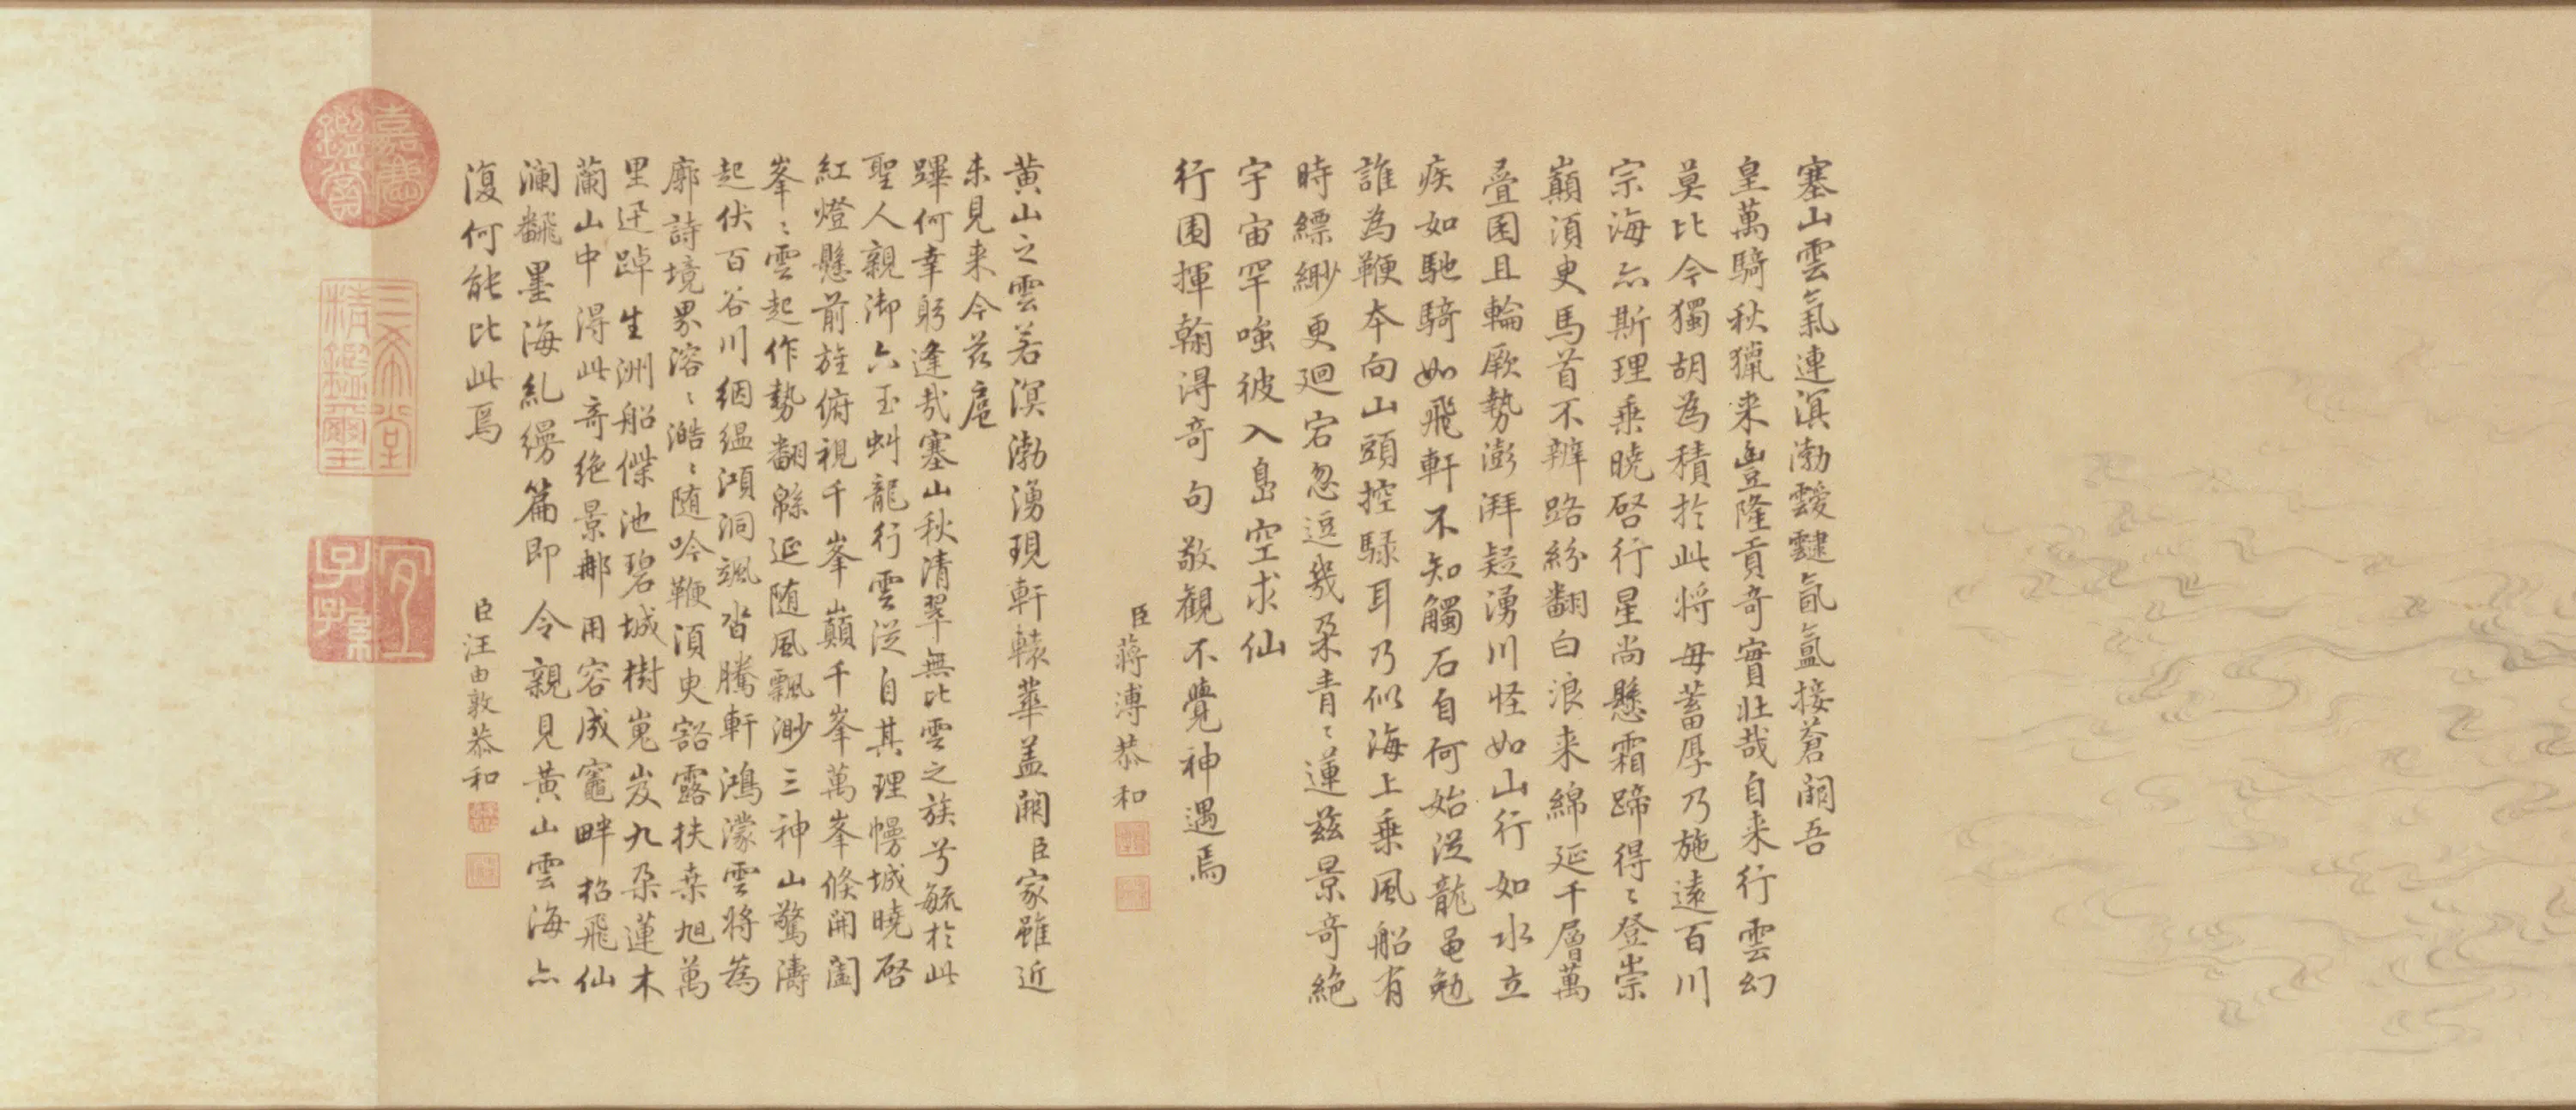 塞山雲氣連溟渤靉靆氤氳接蒼闕吾
皇萬騎秋獵来豊隆貢奇實壮哉自来行雲幻
莫比今獨胡為積於此将毋蓄厚乃施遠百川
宗海亦斯理乗曉啓行星尚懸霜蹄得〻登崇
巔須臾馬首不辨路紛翻白浪来綿延千層萬
疊囷且輪厥勢澎湃疑湧川怪如山行如水立
疾如馳騎如飛軒不知觸石自何始從龍黽勉
誰為鞭本向山頭控騄耳乃似海上乗風船有
時縹緲更迴宕忽逗幾朶青〻蓮茲景奇絶
宇宙罕嗤彼入島空求仙
行圍揮翰得奇句敬觀不覺神遇焉
臣蔣溥恭和
黄山之雲若溟渤湧現軒轅華盖闕臣家雖近
未見来今茲扈
蹕何幸躬逢哉塞山秋清翠無比雲之族兮毓於此
聖人親御六玉虬龍行雲從自其理幔城曉啓
紅燈懸前旌俯視千峯巔千峯萬峯倏開闔
峯〻雲起作勢翻緜延随風飄渺三神山驚濤
起伏百谷川絪縕澒洞颯沓騰軒鴻濛雲将為
廓詩境界溶〻澔〻随吟鞭須臾豁露扶桒旭萬
里迋踔生洲船傑池碧城樹嵬岌九朶蓮木
蘭山中得此奇絶景那用容成竈畔招飛仙
瀾飜墨海糺縵篇即令親見黄山雲海亦
復何能比此焉
臣汪由敦恭和
嘉慶鑑賞
三希堂精鑑璽
宜子孫